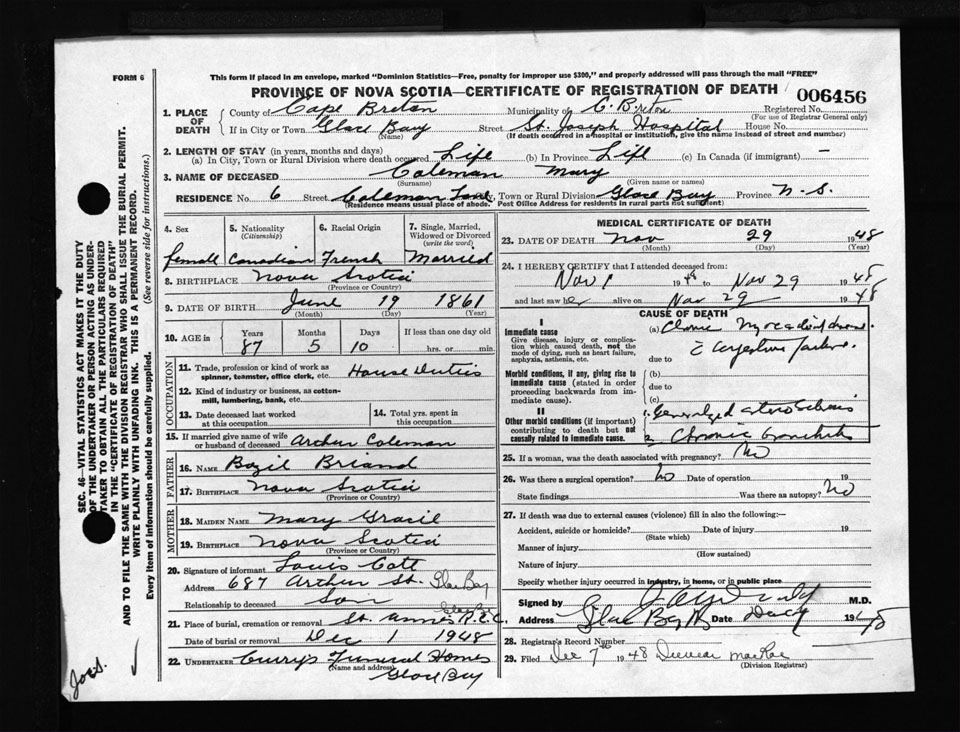 FORM 6
This form if placed in an envelope, marked "Dominion Statistics—Free, penalty for improper use $300," and properly addressed will pass through the mail "FREE"
PROVINCE OF NOVA SCOTIA—CERTIFICATE OF REGISTRATION OF DEATH
006456
1. PLACE OF DEATH
County of Cape Breton Municipality of C. Breton Registered No.
(For use of Registrar General only)
If in City or Town Glace Bay Street St. Joseph Hospital House No.
(Name) (If death occurred in a hospital or institution, give the name instead of street and number)
2. LENGTH OF STAY (in years, months and days)
(a) In City, Town or Rural Division where death occurred Life (b) In Province Life (c) In Canada (if immigrant) —
3. NAME OF DECEASED Coleman Mary
(Surname) (Given name or names)
RESIDENCE No. 6 Street Coleman Town or Rural Division Glace Bay Province N-S.
(Residence means usual place of abode. Post Office Address for residents in rural parts not sufficient)
4. Sex
female
5. Nationality
(Citizenship)
Canadian
6. Racial Origin
French
7. Single, Married, Widowed or Divorced
(write the word)
Married
8. BIRTHPLACE Nova Scotia
(Province or Country)
9. DATE OF BIRTH June 19 1861
(Month) (Day) (Year)
10. AGE in
Years Months Days If less than one day old
87 5 10 hrs. or min.
OCCUPATION
11. Trade, profession or kind of work as spinner, teamster, office clerk, etc. House Duties
12. Kind of industry or business, as cotton-mill, lumbering, bank, etc.
13. Date deceased last worked at this occupation
14. Total yrs. spent in this occupation
15. If married give name of wife or husband of deceased Arthur Coleman
FATHER
16. NAME Bazil Briand
17. BIRTHPLACE Nova Scotia
(Province or Country)
MOTHER
18. MAIDEN NAME Mary
19. BIRTHPLACE Nova Scotia
(Province or Country)
20. Signature of informant Louis
Address 687 Arthur St. Glace Bay
Relationship to deceased Son
21. Place of burial, cremation or removal St. Annes
Date of burial or removal Dec 1 1948
22. UNDERTAKER Curry's Funeral Homes
(Name and address)
Glace Bay
MEDICAL CERTIFICATE OF DEATH
23. DATE OF DEATH Nov 29 1948
(Month) (Day) (Year)
24. I HEREBY CERTIFY that I attended deceased from:
Nov 1 1948 to Nov 29 1948
and last saw her alive on Nov 29 1948
CAUSE OF DEATH
I
Immediate cause
Give disease, injury or complication which caused death, not the mode of dying, such as heart failure, asphyxia, asthenia, etc.
(a) Chronic
due to
Morbid conditions, if any, giving rise to immediate cause (stated in order proceeding backwards from immediate cause).
(b)
due to
(c)
II
Other morbid conditions (if important) contributing to death but not causally related to immediate cause.
1. Generalized
2. Chronic bronchitis
25. If a woman, was the death associated with pregnancy? No
26. Was there a surgical operation? No Date of operation 19
State findings Was there autopsy? No
27. If death was due to external causes (violence) fill in also the following:—
Accident, suicide or homicide? Date of injury 19
(State which)
Manner of injury
(How sustained)
Nature of injury
Specify whether injury occurred in industry, in home, or in public place
Signed by M.D.
Address Glace Bay Date 1948
28. Registrar's Record Number
29. Filed Dec 7th 1948
(Division Registrar)
SEC. 46—VITAL STATISTICS ACT MAKES IT THE DUTY
OF THE UNDERTAKER OR PERSON ACTING AS UNDERTAKER TO OBTAIN ALL THE PARTICULARS REQUIRED
IN THE "CERTIFICATE OF REGISTRATION OF DEATH"
AND TO FILE THE SAME WITH THE DIVISION REGISTRAR WHO SHALL ISSUE THE BURIAL PERMIT.
WRITE PLAINLY WITH UNFADING INK. THIS IS A PERMANENT RECORD.
Every item of information should be carefully supplied. (See reverse side for instructions.)